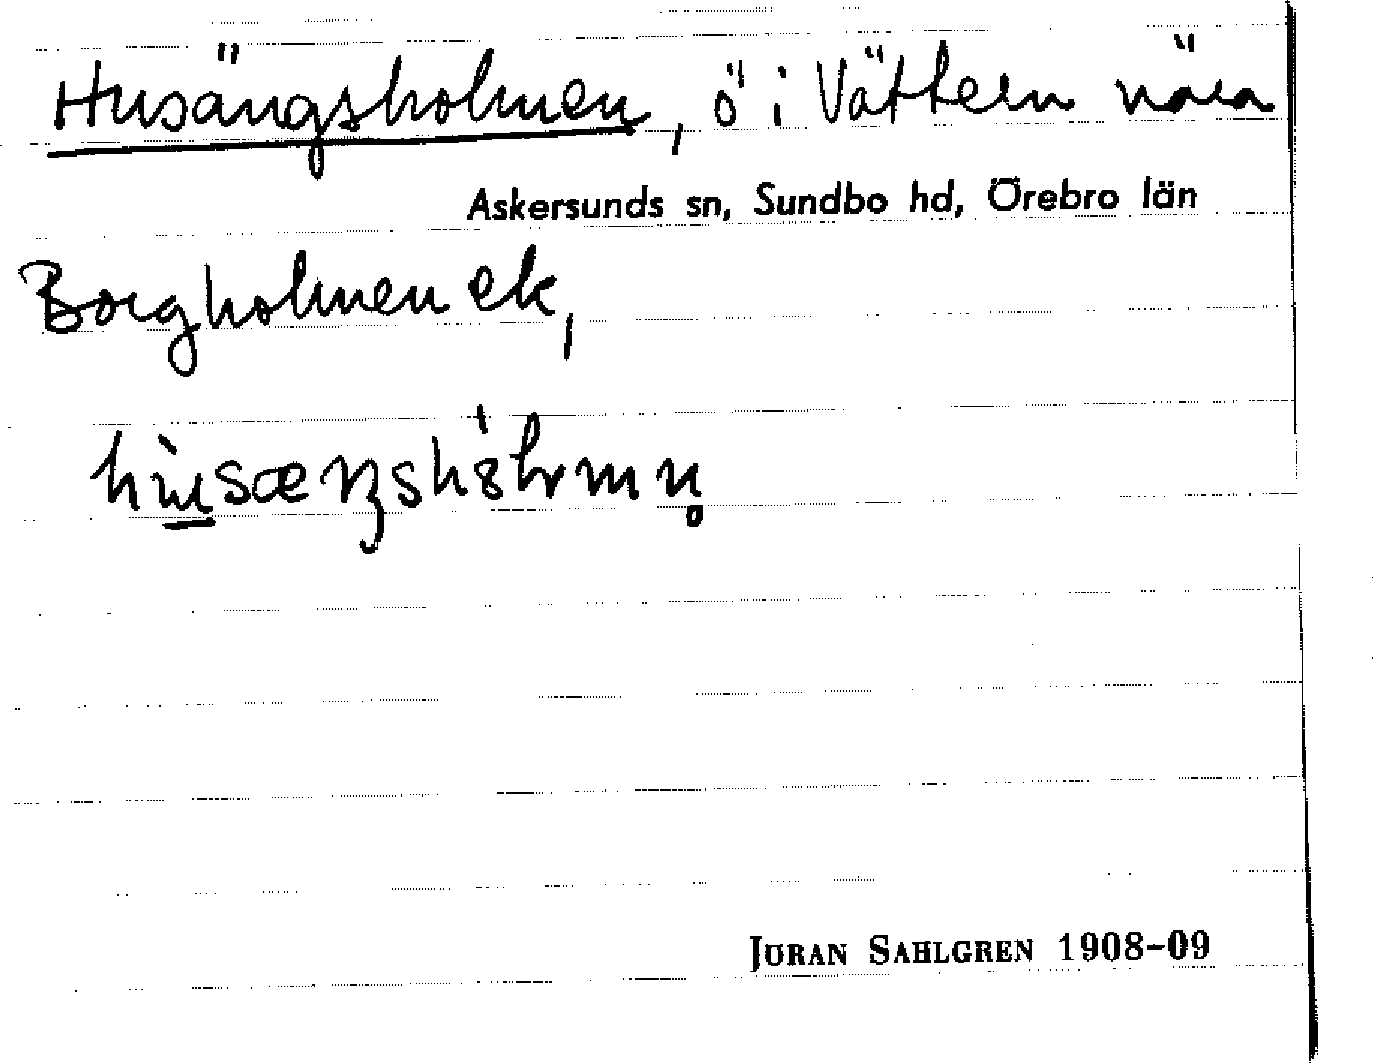 Husängsholmen, ö i Vättern nära
Askersunds sn, Sundbo hd, Örebro län
Borgholmen ek,
JÖRAN SAHLGREN 1908-09